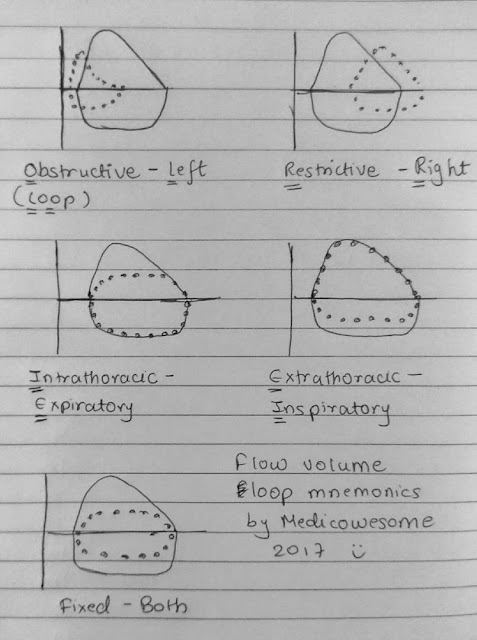 Obstructive - Left
(Loop)
Restrictive - Right
Intrathoracic -
Expiratory
Extrathoracic -
Inspiratory
Fixed - Both
Flow volume
loop mnemonics
by Medicowesome
2017